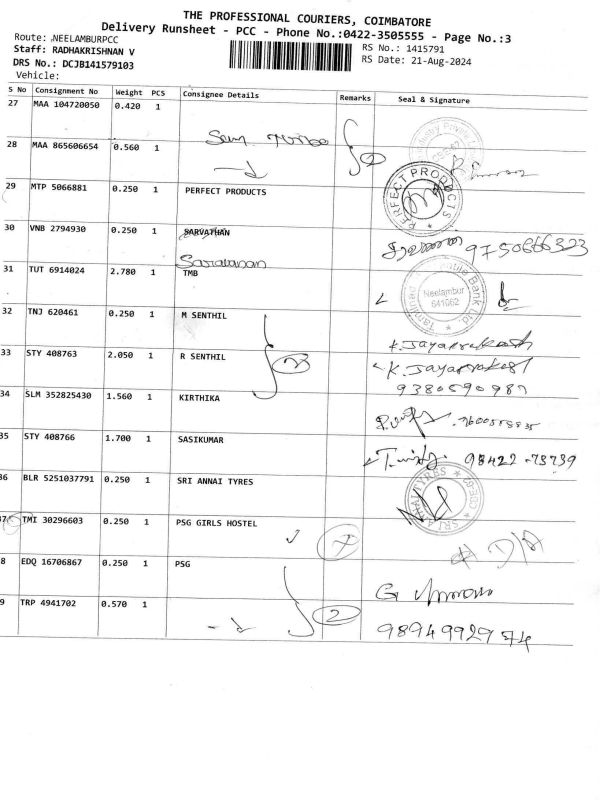 THE PROFESSIONAL COURIERS, COIMBATORE
Delivery Runsheet - PCC - Phone No.:0422-3505555 - Page No.:3
Route: .NEELAMBURPCC
RS No.: 1415791
Staff: RADHAKRISHNAN V
RS Date: 21-Aug-2024
DRS No.: DCJB141579103
Vehicle:
S No Consignment No Weight PCS Consignee Details Remarks Seal & Signature
27 MAA 104720050 0.420 1
28 MAA 865606654 0.560 1 2
29 MTP 5066881 0.250 1 PERFECT PRODUCTS PERFECT PRODUCTS
30 VNB 2794930 0.250 1 SARVATHAN
Saravanan
31 TUT 6914024 2.780 1 TMB Neelambur 641062
32 TNJ 620461 0.250 1 M SENTHIL K. Jayaprakash
33 STY 408763 2.050 1 R SENTHIL K. Jayaprakash
34 SLM 352825430 1.560 1 KIRTHIKA
35 STY 408766 1.700 1 SASIKUMAR 98422-73739
36 BLR 5251037791 0.250 1 SRI ANNAI TYRES
37 TMI 30296603 0.250 1 PSG GIRLS HOSTEL
8 EDQ 16706867 0.250 1 PSG
9 TRP 4941702 0.570 1 2 9894992974